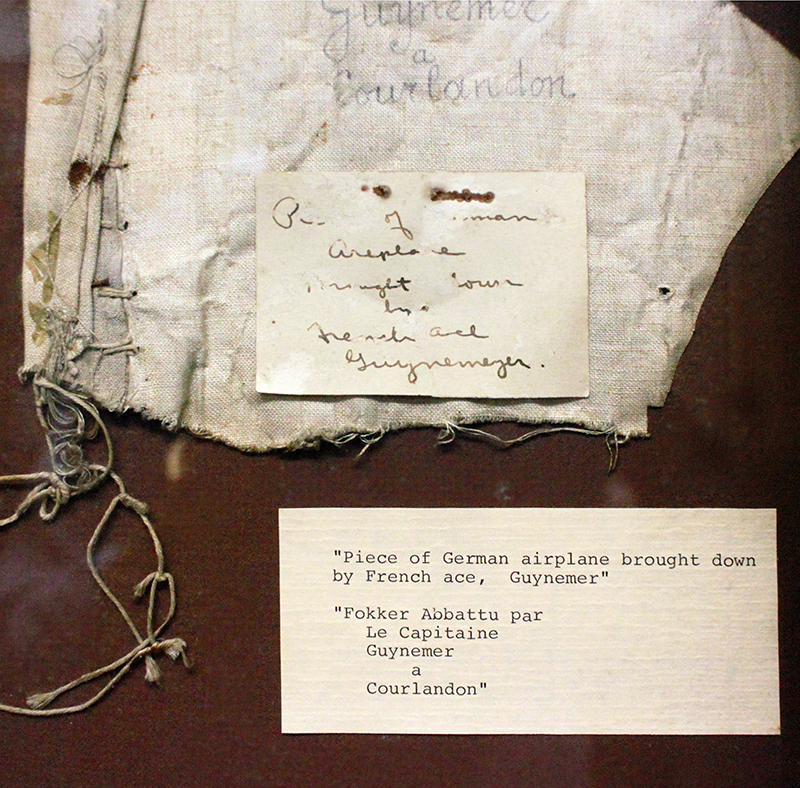 Guynemer
a
Courlandon
of
Areplane
Brought
by
French Ace
Guynemeyer.
"Piece of German airplane brought down
by French ace, Guynemer"
"Fokker Abbattu par
Le Capitaine
Guynemer
a
Courlandon"